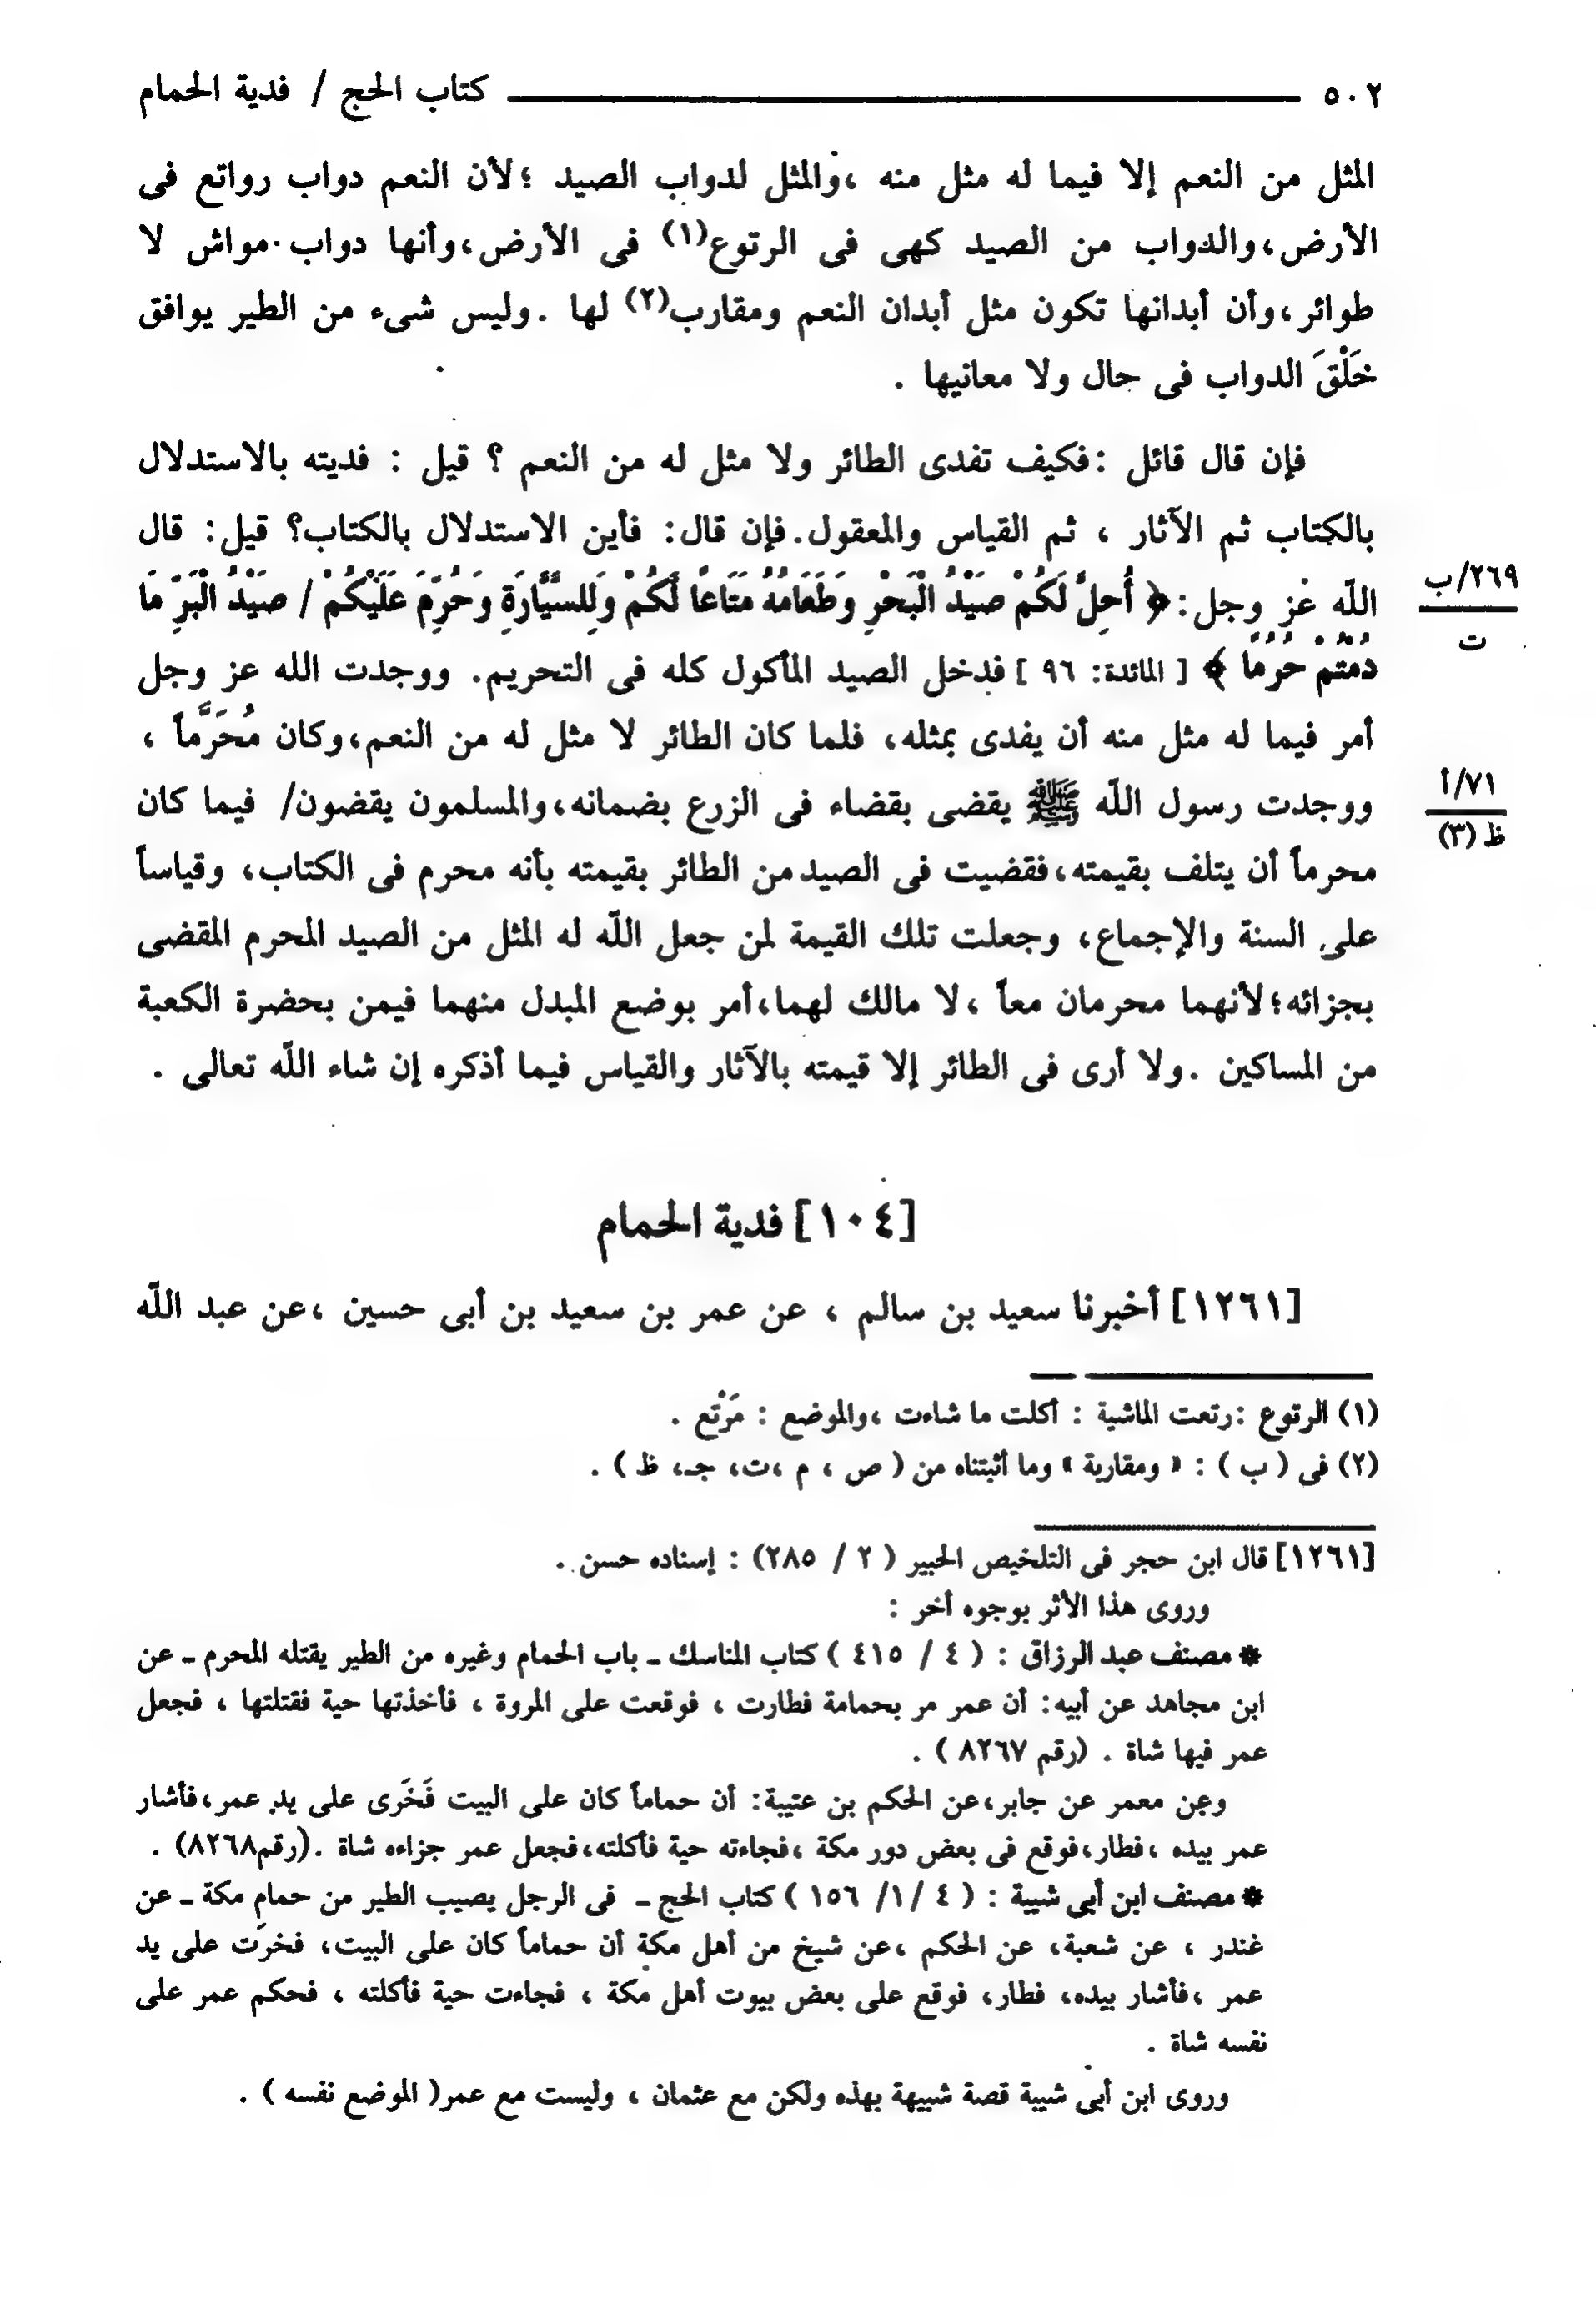 ٥٠٢ ــــــــــــــ كتاب الحج / فدية الحمام
المثل من النعم إلا فيما له مثل منه ،والمثل لدواب الصيد ؛لأن النعم دواب رواتع فى
الأرض،والدواب من الصيد كهى فى الرتوع(١) فى الأرض،وأنها دواب مواش لا
طوائر،وأن أبدانها تكون مثل أبدان النعم ومقارب(٢) لها .وليس شىء من الطير يوافق
خَلْقَ الدواب فى حال ولا معانيها .
فإن قال قائل :فكيف تفدى الطائر ولا مثل له من النعم ؟ قيل : فديته بالاستدلال
بالكتاب ثم الآثار ، ثم القياس والمعقول.فإن قال: فأين الاستدلال بالكتاب؟ قيل: قال
اللّه عز وجل:﴿ أُحِلَّ لَكُمْ صَيْدُ الْبَحْرِ وَطَعَامُهُ مَتَاعًا لَّكُمْ وَلِلسَّيَّارَةِ وَحُرِّمَ عَلَيْكُمْ / صَيْدُ الْبَرِّ مَا
٢٦٩/ب
ت
دُمْتُمْ حُرُمًا ﴾ [ المائدة: ٩٦ ] فدخل الصيد المأكول كله فى التحريم. ووجدت الله عز وجل
أمر فيما له مثل منه أن يفدى بمثله، فلما كان الطائر لا مثل له من النعم،وكان مُحَرَّماً ،
ووجدت رسول اللّه ﷺ يقضى بقضاء فى الزرع بضمانه،والمسلمون يقضون/ فيما كان
٧١/أ
ظ (٣)
محرماً أن يتلف بقيمته،فقضيت فى الصيد من الطائر بقيمته بأنه محرم فى الكتاب، وقياساً
على السنة والإجماع، وجعلت تلك القيمة لمن جعل اللّه له المثل من الصيد المحرم المقضى
بجزائه؛لأنهما محرمان معاً ،لا مالك لهما،أمر بوضع المبدل منهما فيمن بحضرة الكعبة
من المساكين .ولا أرى فى الطائر إلا قيمته بالآثار والقياس فيما أذكره إن شاء اللّه تعالى .
[١٠٤] فدية الحمام
[١٢٦١] أخبرنا سعيد بن سالم ، عن عمر بن سعيد بن أبى حسين ،عن عبد اللّه
(١) الرتوع :رتعت الماشية : أكلت ما شاءت ،والموضع : مَرْتَع .
(٢) فى ( ب ) : « ومقاربة » وما أثبتناه من ( ص ، م ،ت، جـ، ظ ) .
[١٢٦١] قال ابن حجر فى التلخيص الحبير ( ٢ / ٢٨٥) : إسناده حسن .
وروى هذا الأثر بوجوه أخر :
* مصنف عبد الرزاق : ( ٤ / ٤١٥ ) كتاب المناسك ـ باب الحمام وغيره من الطير يقتله المحرم ـ عن
ابن مجاهد عن أبيه: أن عمر مر بحمامة فطارت ، فوقعت على المروة ، فأخذتها حية فقتلتها ، فجعل
عمر فيها شاة . (رقم ٨٢٦٧ ) .
وعن معمر عن جابر،عن الحكم بن عتيبة: أن حماماً كان على البيت فَخَرَى على يد عمر،فأشار
عمر بيده ،فطار،فوقع فى بعض دور مكة ،فجاءته حية فأكلته،فجعل عمر جزاءه شاة .(رقم٨٢٦٨) .
* مصنف ابن أبى شيبة : ( ٤ /١/ ١٥٦ ) كتاب الحج ـ فى الرجل يصيب الطير من حمام مكة ـ عن
غندر ، عن شعبة، عن الحكم ،عن شيخ من أهل مكة أن حماماً كان على البيت، فخرَت على يد
عمر ،فأشار بيده، فطار، فوقع على بعض بيوت أهل مكة ، فجاءت حية فأكلته ، فحكم عمر على
نفسه شاة .
وروى ابن أبى شيبة قصة شبيهة بهذه ولكن مع عثمان ، وليست مع عمر( الموضع نفسه ) .